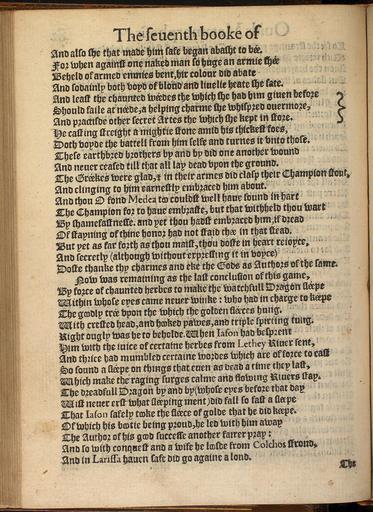 The seuenth booke of
And also she that made him safe began abasht to bée.
For when against one naked man so huge an armie shée
Beheld of armed enmies bent, hir colour did abate
And sodainly both voyd of blood and liuelie heate she sate.
And least the chaunted wéedes the which she had him giuen before
Should faile at néede, a helping charme she whispred ouermore,
And practisde other secret Artes the which she kept in store.
He casting streight a mightie stone amid his thickest foes,
Doth voyde the battell from him selfe and turnes it vnto those.
These earthbred brothers by and by did one another wound
And neuer ceased till that all lay dead vpon the ground.
The Gréekes were glad, & in their armes did clasp their Champion stout,
And clinging to him earnestly embraced him about.
And thou O fond Medea to couldst well haue found in hart
The Champion for to haue embraste, but that withheld thou wart
By shamefastnesse, and yet thou hadst embraced him, if dread
Of stayning of thine honor had not staid thée in that stead.
But yet as far forth as thou maist, thou doste in heart reioyce,
And secretly (although without expressing it in voyce)
Doste thanke thy charmes and eke the Gods as Authors of the same.
Now was remaining as the last conclusion of this game,
By force of chaunted herbes to make the watchfull Dragon sléepe
Within whose eyes came neuer winke: who had in charge to kéepe
The goodly trée vpon the which the golden fléeces hung.
With crested head, and hooked pawes, and triple spirting tung,
Right ougly was he to beholde. When Iason had besprent
Him with the iuice of certaine herbes from Lethey Riuer sent,
And thrice had mumbled certaine wordes which are of force to cast
So sound a sléepe on things that euen as dead a time they last,
Which make the raging surges calme and flowing Riuers stay.
The dreadfull Dragon by and by (whose eyes before that day
Wist neuer erst what sléeping ment) did fall so fast a sléepe
That Iason safely tooke the fléece of golde that he did kéepe.
Of which his bootie being proud, he led with him away
The Author of his good successe another fairer pray:
And so with conquest and a wife he loosde from Colchos strond,
And in Larissa hauen safe did go againe a lond.
The